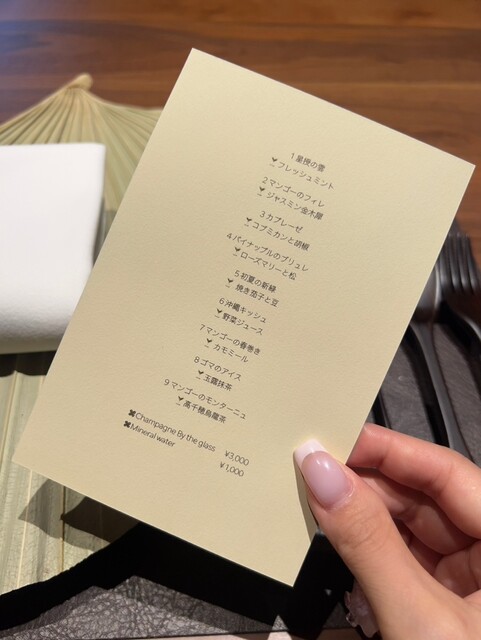 1 星授の雫
フレッシュミント
2 マンゴーのフィレ
ジャスミン金木犀
3 カプレーゼ
コブミカンと胡椒
4 パイナップルのブリュレ
ローズマリーと松
5 初夏の新緑
焼き茄子と豆
6 沖縄キッシュ
野菜ジュース
7 マンゴーの春巻き
カモミール
8 ゴマのアイス
玉露抹茶
9 マンゴーのモンターニュ
高千穂烏龍茶
Champagne By the glass ¥3,000
Mineral water ¥1,000